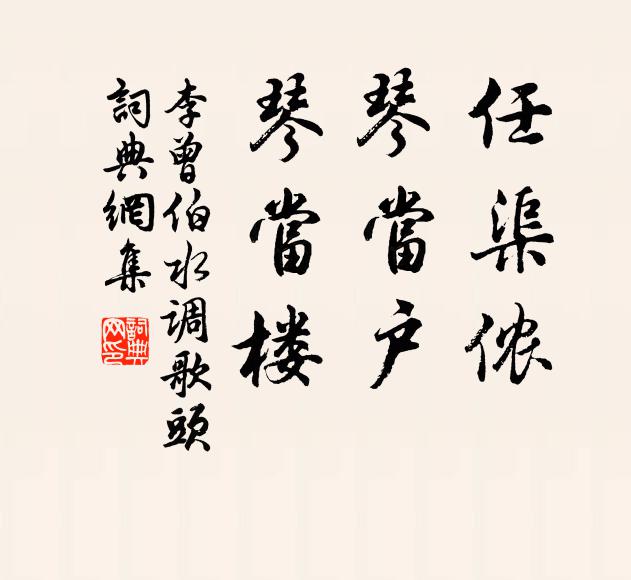 任渠侬
琴當户
琴當楼
李曾伯水调歌頭
詞典網集
詞典网印